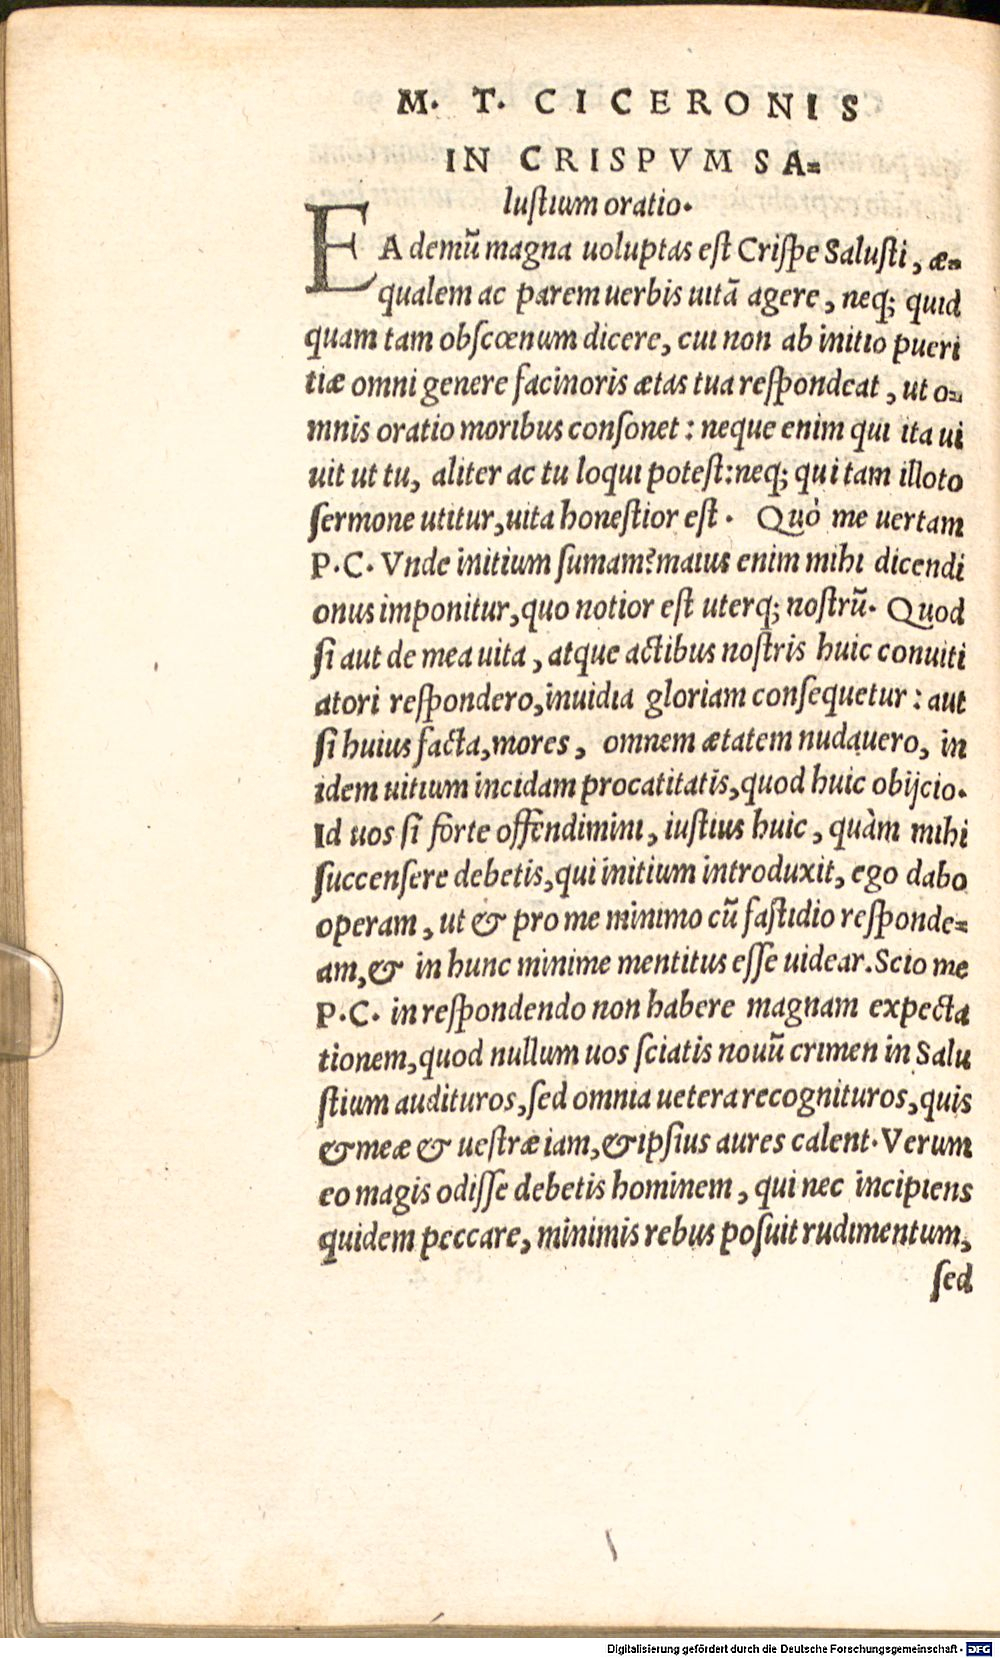 M. T. CICERONIS
IN CRISPVM SA=
lustium oratio.
EA demũ magna uoluptas est Crispe Salusti, æ=
qualem ac parem uerbis uitã agere, neq; quid
quam tam obscœnum dicere, cui non ab initio pueri
tiæ omni genere facinoris ætas tua respondeat, ut o=
mnis oratio moribus consonet: neque enim qui ita ui
uit ut tu, aliter ac tu loqui potest: neq; qui tam illoto
sermone utitur, uita honestior est. Quò me uertam
P.C. Vnde initium sumam? maius enim mihi dicendi
onus imponitur, quo notior est uterq; nostrũ. Quod
si aut de mea uita, atque actibus nostris huic conuiti
atori respondero, inuidia gloriam consequetur: aut
si huius facta, mores, omnem ætatem nudauero, in
idem uitium incidam procatitatis, quod huic obijcio.
Id uos si forte offendimini, iustius huic, quàm mihi
succensere debetis, qui initium introduxit, ego dabo
operam, ut & pro me minimo cũ fastidio responde=
am, & in hunc minime mentitus esse uidear. Scio me
P.C. in respondendo non habere magnam expecta
tionem, quod nullum uos sciatis nouũ crimen in Salu
stium audituros, sed omnia uetera recognituros, quis
& meæ & uestræ iam, & ipsius aures calent. Verum
eo magis odisse debetis hominem, qui nec incipiens
quidem peccare, minimis rebus posuit rudimentum,
sed
Digitalisierung gefördert durch die Deutsche Forschungsgemeinschaft - DFG